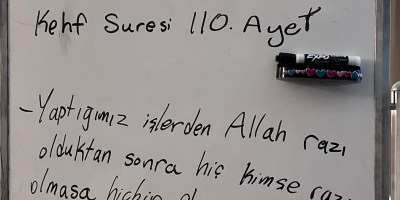 Kehf Suresi 110. Ayet
EXPO
-Yaptığımız işlerden Allah razı
olduktan sonra hiç kimse razı
olmasa hiçbir